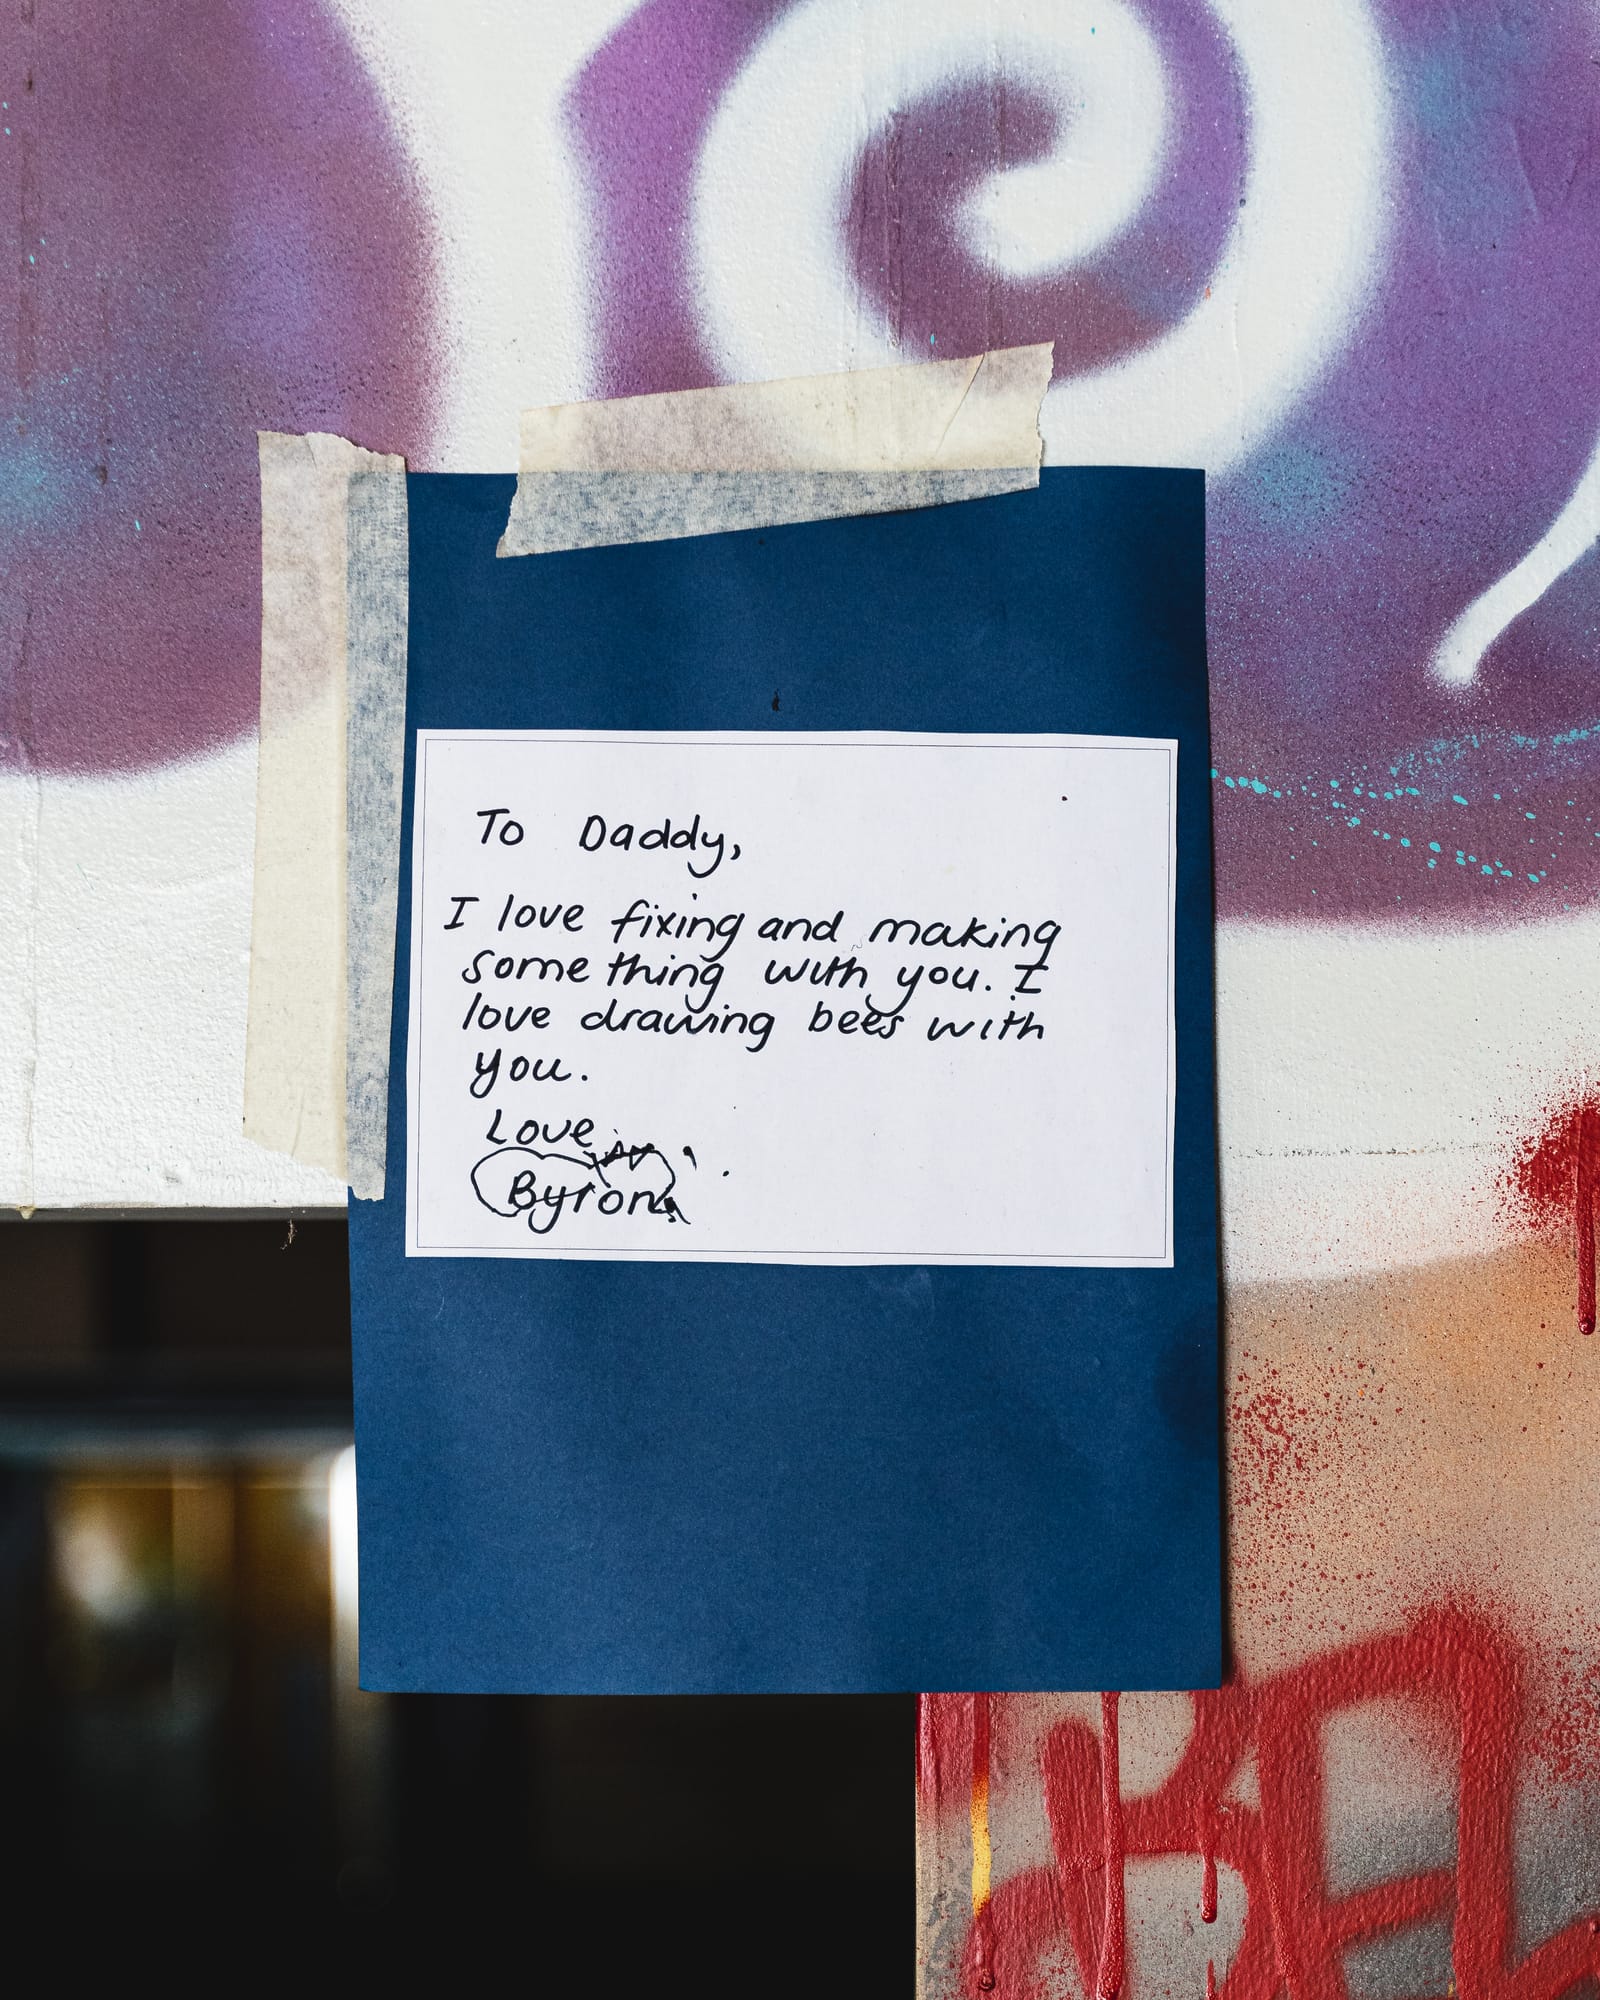 To Daddy,
I love fixing and making
some thing with you. I
love drawing bees with
you.
Love
Byron